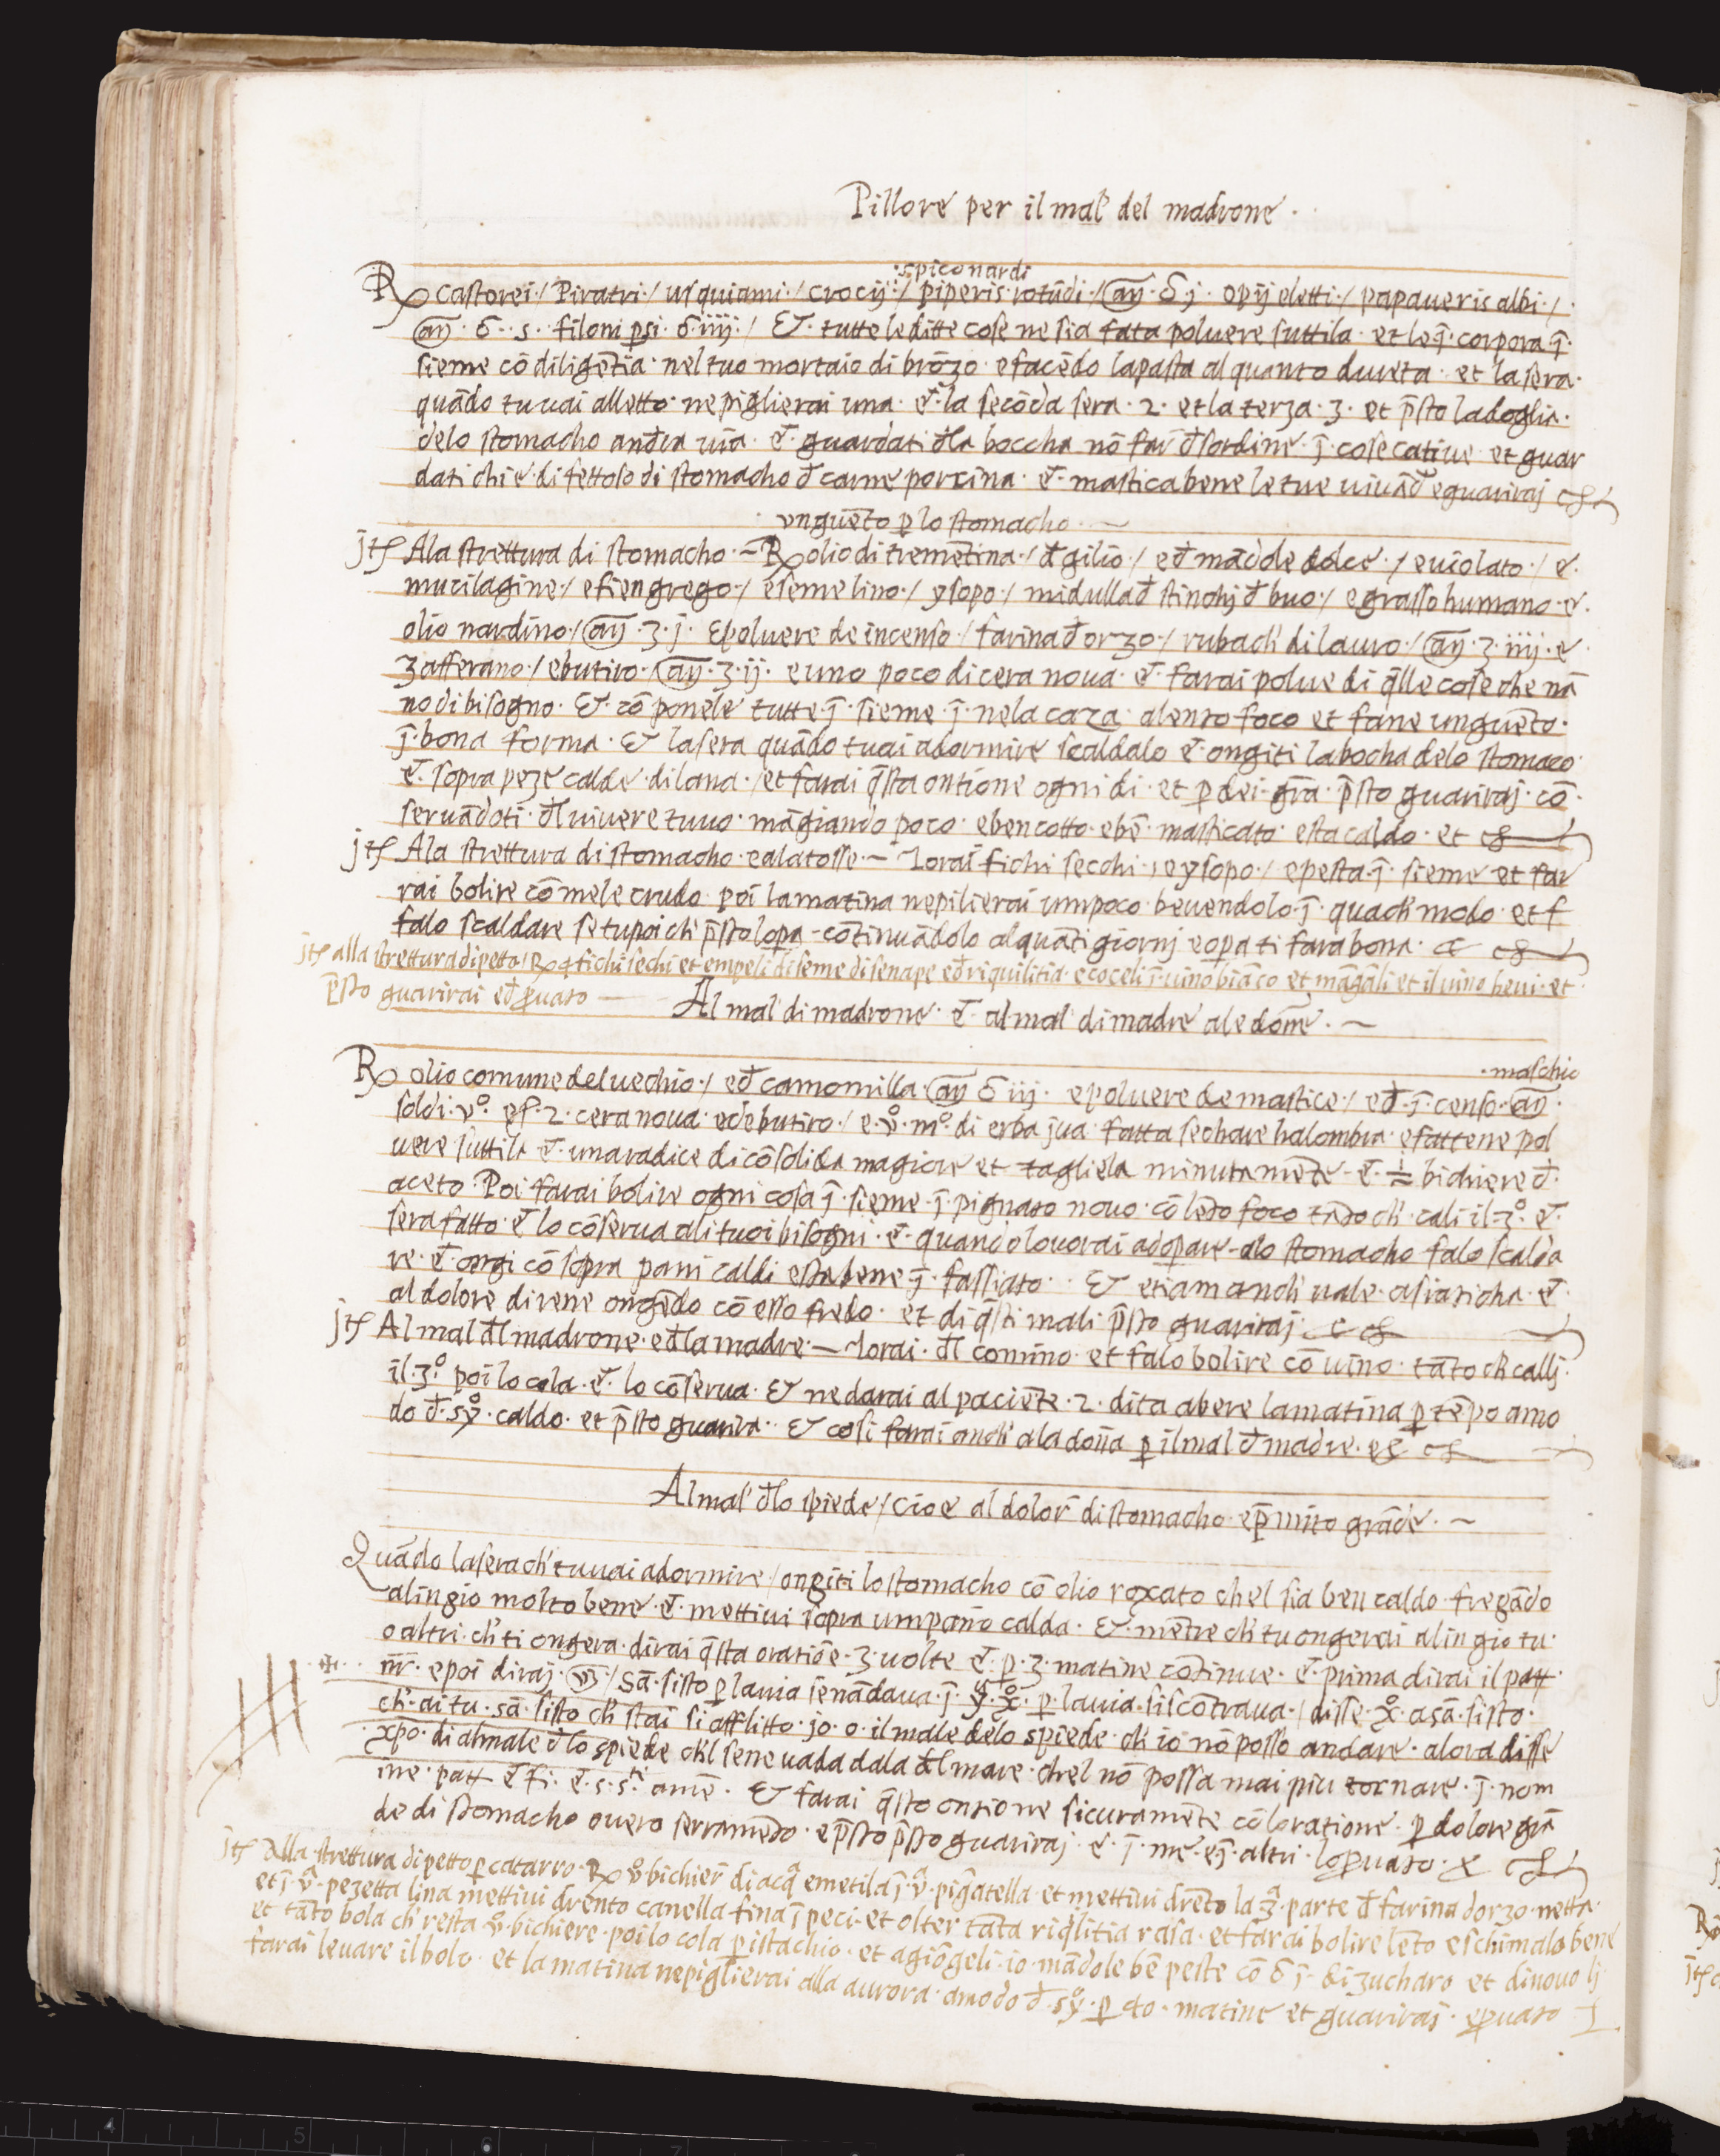 Pillore per il mal' del madrone.
:spiconardi
℞ Castorei / Piratri / uſquiami / crocij / piperis rotūdi / an̄ ʒ j . opij eletti / papaueris albi /
an̄ . ʒ . s . filoni p̄si . ʒ iiij / Et tutte le ditte coſe ne ſia fata poluere ſuttila . et le ī corpora ī
ſieme cō diligētia nel tuo mortaio di brōzo e facēdo la paſta al quanto dureta . et la ſera
quādo tu uai alletto ne piglierai una . e la ſecōda ſera . 2 . et la terza . 3 . et p̄ſto la doglia .
delo ſtomacho andra uia . e guardati đla boccha nō far đſordine ī coſe catiue et guar
dati chi e difettoſo di ſtomacho đ carne porcina . e maſtica bene le tue uiuād e guariraj
vnguēto ꝑ lo ſtomacho
jtē Ala ſtrettura di ſtomacho ~ ℞ olio di tremētina / đ gilio / e đ mādole dolce / e uiolato / e
mucilagine / e fiengrego / e ſeme lino / yſopo / midulla đ ſtinchj đ buo / e graſſo humano e
olio nardino / an̄ . ʒ . j . E poluere de incenſo / farina đ orzo / rubach' di lauro / an̄ . ʒ . iiij . e
zafferano / e butiro / an̄ . ʒ . ij . e uno poco di cera noua . e farai polue di q̄lle coſe che nā
no di biſogno . Et cō ponele tutte ī ſieme ī nela caza a lento foco et fane unguēto .
ī bona forma . Et la ſera quādo tu uai a dormire ſcaldalo e ongiti la bocha delo ſtomaco
e ſopra peze calde di lana / et farai q̄ſta ontione ogni di . et ꝑ dei grā p̄ſto guariraj . cō
ſeruādoti đl uiuere tuuo māgiando poco e ben cotto e bē maſticato e ſta caldo . et
jtē Ala ſtrettura di ſtomacho e ala toſſe . ~ Torai fichi ſecchi , e yſopo / e peſta ī ſieme et fa
rai bolire cō mele crudo poi la matina ne pilierai un poco beuendolo ī quach' modo et f
falo ſcaldare ſe tu poi ch' p̄ſto lopa - cōtinuādolo al quāti giornj e opa ti fara bona .
jtē alla ſtrettura di petto / ℞ 4 fichi ſechi et empeli di ſeme di ſenape e đ riquilitia e coceli ī uino biāco et māgali et il uino beui et
p̄ſto guarirai e đ ꝓuato
Al mal' di madrone e al mal' di madre a le dōne . ~
. maſchio
℞ olio comune del uechio / e đ camomilla an̄ ʒ iij . e poluere de maſtice / e đ ī cenſo . an̄ .
ſoldi . vº . e ſ . 2 . cera noua e de butiro / e . vº . mº . di erba jua fatta ſechare ha lombra e fattene pol
uere ſuttila e una radice di cōſolida magiore et tagliela minutamēte e ½ bichiere đ
aceto Poi farai bolire ogni coſa ī ſieme ī pignato nouo cō lēto foco tāto ch' cali il 3º . e
ſera fatto e lo cōſerua ali tuoi biſogni . e quando lo uorai adopare alo ſtomacho falo ſcalda
re e ongi cō ſopra pani caldi e ſta bene ī faſſiato . Et etiam anch' uale a ſiaticha e
al dolore di rene ongēdo cō eſſo fredo . et di q̄ſti mali p̄ſto guariraj .
jtē Al mal đl madrone e đla madre ~ Torai đl comino et falo bolire cō uino tāto ch' callj
il 3º poi lo cola e lo cōſerua Et ne darai al paciēte . 2 . dita a bere la matina ꝑ tēpo a mo
do đ . syº . caldo . et p̄ſto guarira . Et coſi farai anch' ala dōna ꝑ il mal đ madre
Al mal' đlo ſpiede / cioe al dolor di ſtomacho e p̄mito grāde . ~
Quādo la ſera ch' tu uai a dormire / ongiti lo ſtomacho cō olio roxato chel ſia ben caldo fregādo
alingio molto bene e mettiui ſopra un pano caldo . Et mētre ch' tu ongerai alingio tu
o altri ch' ti ongera dirai q̄ſta oratiōe . 3 . uolte e ꝑ . 3 . matine cōtinue . e prima dirai il patt
nr̄ . e poi diraj / Sā ſiſto ꝑ la uia ſe nādaua ī ꝑ la uia ſiſcōtraua / diſſe . xº . a sā ſiſto .
ch' ai tu . sā ſiſto ch' ſtai ſi afflitto . jo . o . il male delo ſpiede ch' io nō poſſo andare . alora diſſe
xp̄o . di al male đlo ſpiede ch'l ſene uada dala đl mare chel nō poſſa mai piu tornare . ī nom
ine patt e fi . e s . sti . amē . Et farai q̄ſto ontione ſicuramēte cō loratione . ꝑ dolore grā
de di ſtomacho ouero ſerramēto . e p̄ſto p̄ſto guariraj . e ī me e ī altri lo ꝓuato .
jtē Alla ſtrettura di petto ꝑ catarro . ℞ vº bichier̄ di acq̄ e metila ī vª . pig̃atella et mettiui drēto la 3ª . parte đ farina dorzo netta
et ī vª . pezetta lina mettiui drēnto canella fina ī peci et olter tāta riq̄litia raſa . et farai bolire lēto e ſchimalo bene
et tāto bola ch' reſta vº bichiere poi lo cola ꝑ iſtachio . et agiōgeli . io mādole bē peſte cō ʒ j . di zucharo et di nouo lj
farai leuare il bolo . et la matina ne piglierai alla aurora a modo đ . syº . ꝑ 40 . matine et guariraj . e ꝓuato